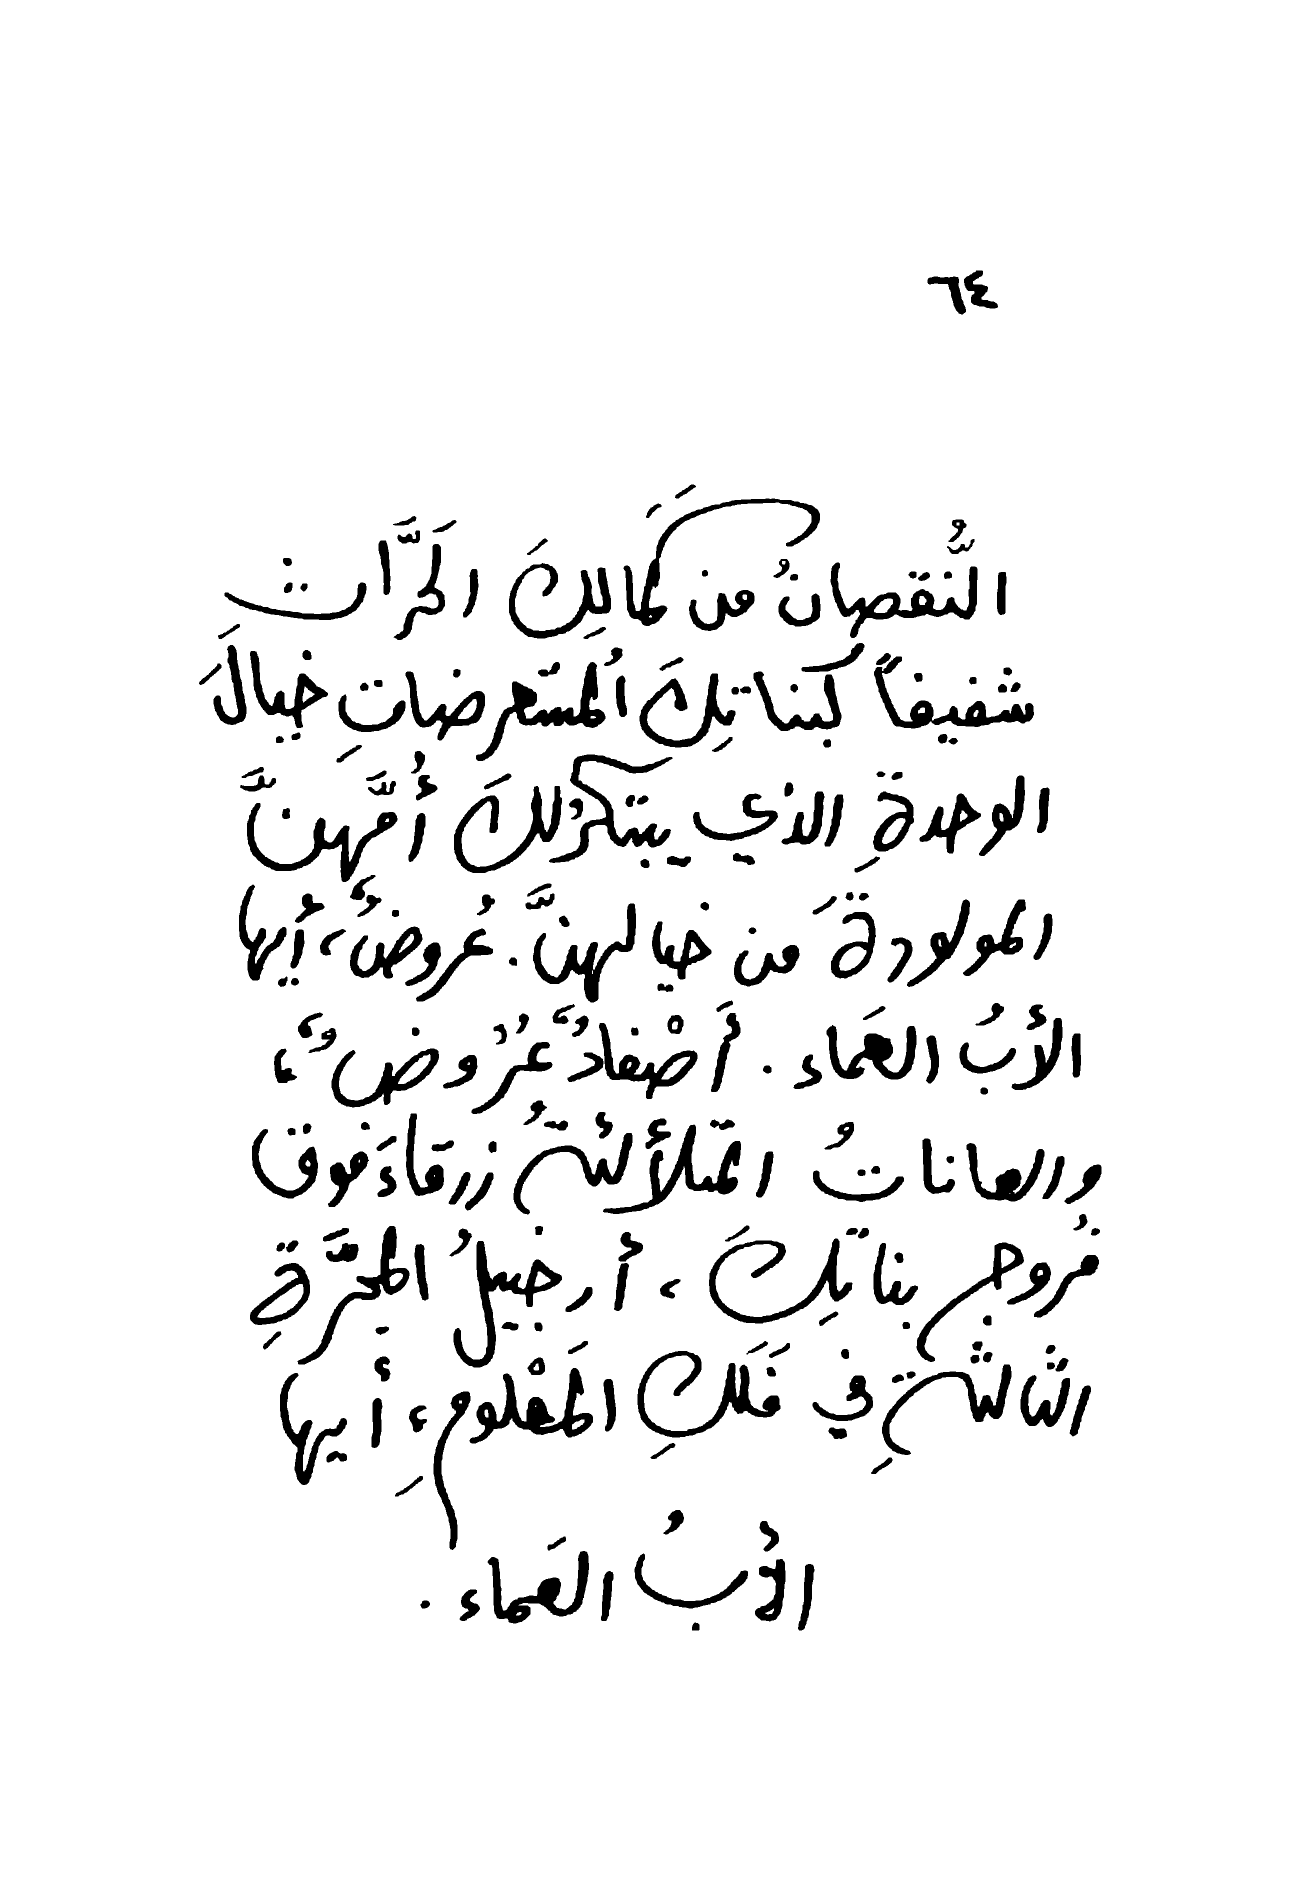 ٦٤
النُّقصانُ من كَمَالِكَ الحَرَّاث
شفيفاً كبناتِكَ المُستعرضاتِ خيالَ
الوحدةِ الذي يبتكرُ لكَ أُمَّهنَّ
المولودةَ من خيالهنَّ. عُروضٌ، أيها
الأبُ العَماء. أَصْفادٌ عُرُوضٌ،
والعاناتُ المتلألئةُ زرقاءَ فوق
فُروج بناتِكَ، أرخبيلُ المجَرَّةِ
الثالثةِ في فَلَكِ المَعْلومِ، أيها
الأبُ العَماء.